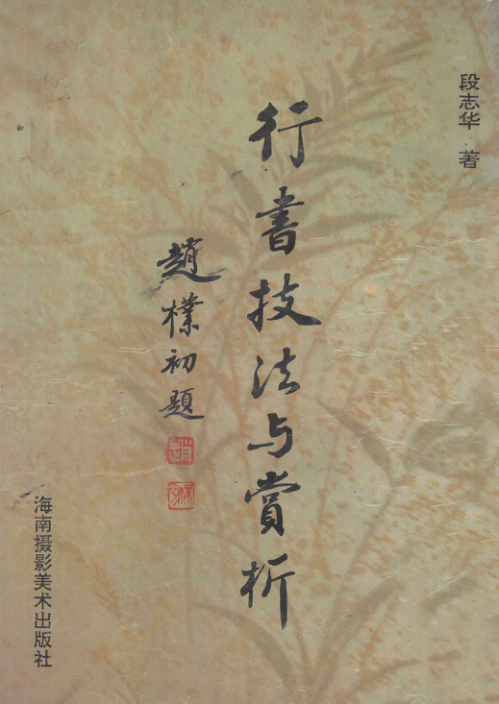 段志华·著
行書技法与賞析
趙樸初題
海南摄影美术出版社